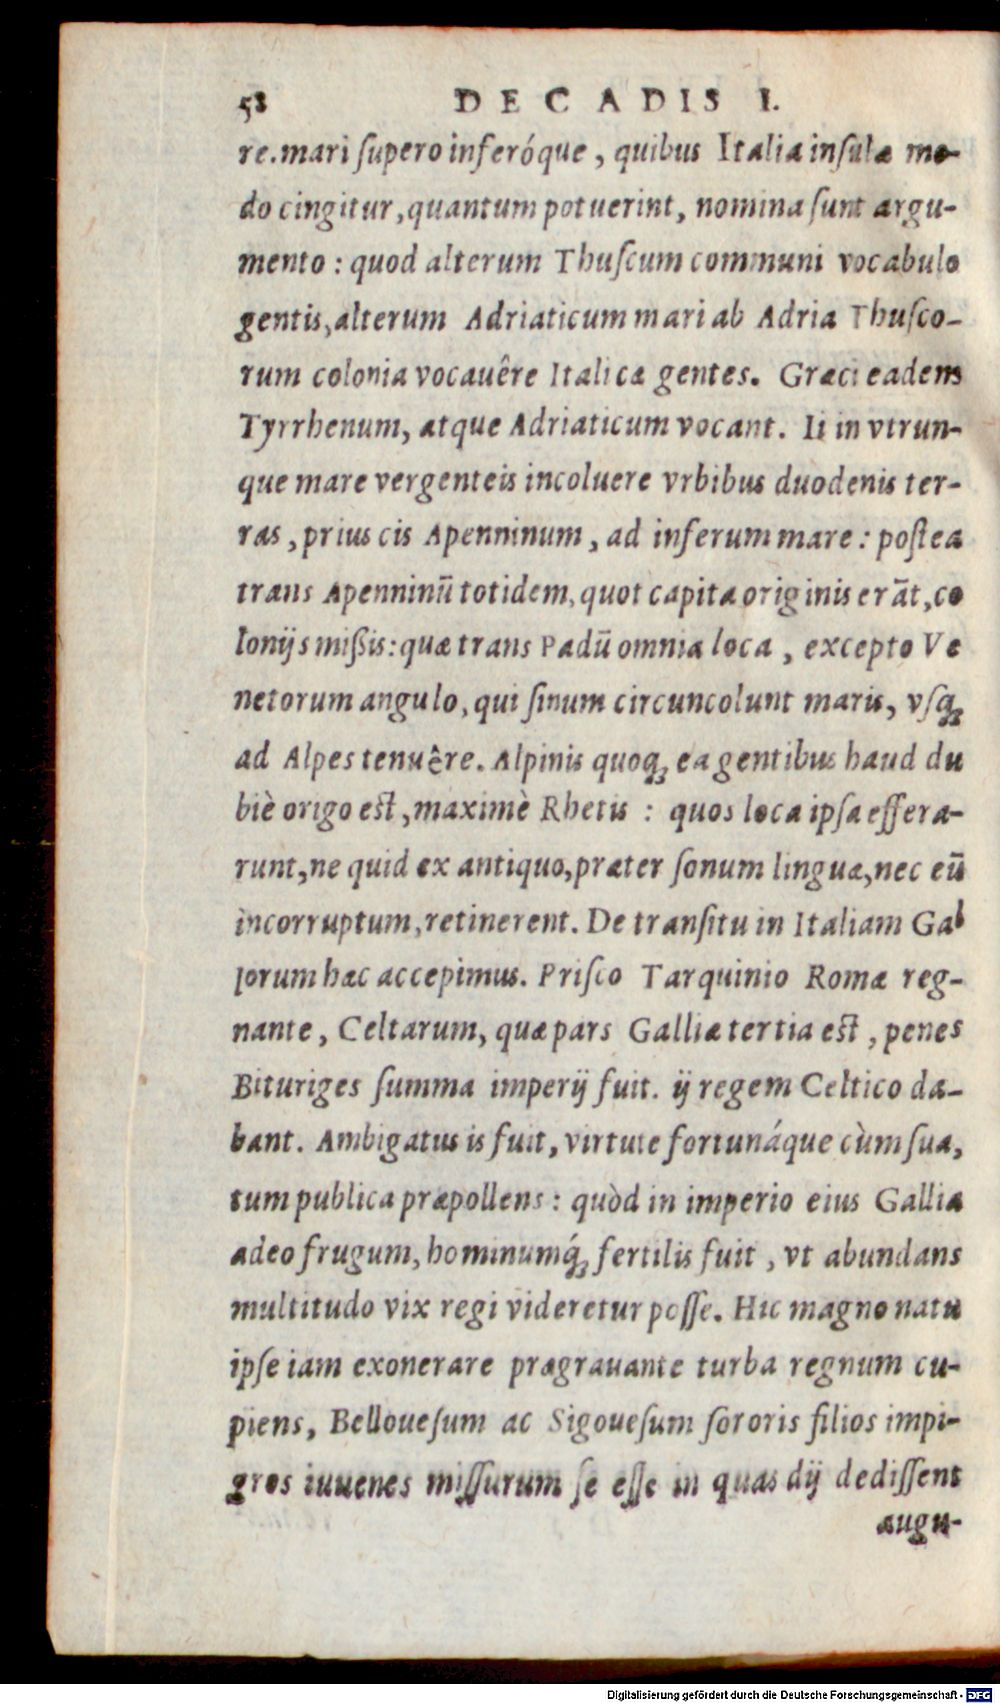 58 DECADIS I.
re. mari ſupero inferóque, quibus Italia inſulæ mo-
do cingitur, quantum potuerint, nomina ſunt argu-
mento: quod alterum Thuſcum communi vocabulo
gentis, alterum Adriaticum mari ab Adria Thuſco-
rum colonia vocauêre Italicæ gentes. Græci eadem
Tyrrhenum, atque Adriaticum vocant. Ii in vtrun-
que mare vergenteis incoluere vrbibus duodenis ter-
ras, prius cis Apenninum, ad inferum mare: poſtea
trans Apenninū totidem, quot capita originis erāt, co
lonijs miſsis: quæ trans Padū omnia loca, excepto Ve
netorum angulo, qui ſinum circuncolunt maris, vſq;
ad Alpes tenuêre. Alpinis quoq; ea gentibus haud du
biè origo eſt, maximè Rhetis: quos loca ipſa effera-
runt, ne quid ex antiquo, præter ſonum linguæ, nec eū
incorruptum, retinerent. De tranſitu in Italiam Gal
lorum hæc accepimus. Priſco Tarquinio Romæ reg-
nante, Celtarum, quæ pars Galliæ tertia eſt, penes
Bituriges ſumma imperij fuit. ij regem Celtico da-
bant. Ambigatus is fuit, virtute fortunáque cùm ſua,
tum publica præpollens: quòd in imperio eius Gallia
adeo frugum, hominumq́; fertilis fuit, vt abundans
multitudo vix regi videretur poſſe. Hic magno natu
ipſe iam exonerare prægrauante turba regnum cu-
piens, Belloueſum ac Sigoueſum ſororis filios impi-
gros iuuenes miſſurum ſe eſſe in quas dij dediſſent
augu-
Digitalisierung gefördert durch die Deutsche Forschungsgemeinschaft - DFG